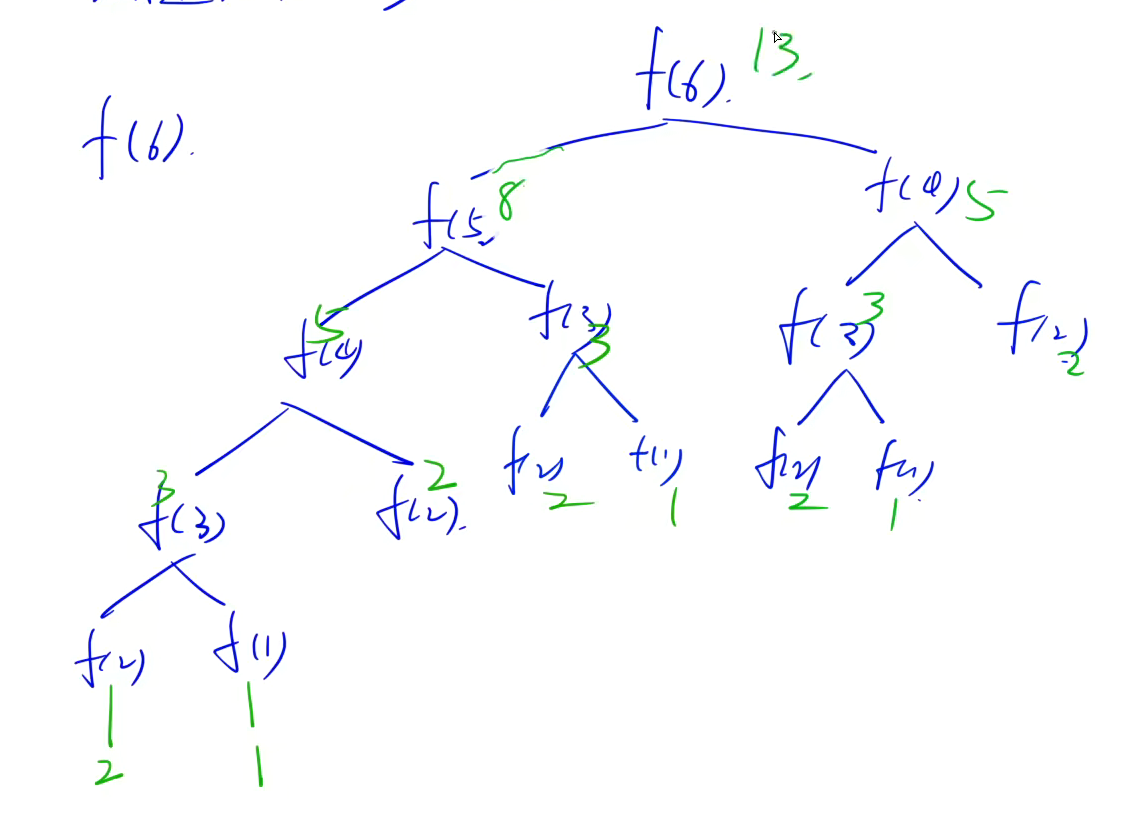 f(6). 13.
f(6).
f(5) 8
f(4) 5
5
f(4)
f(3) 3
f(3) 3
f(2) 2
3
f(3)
2
f(2).
f(2) 2
f(1) 1
f(2) 2
f(1) 1
f(2)
f(1)
2
1